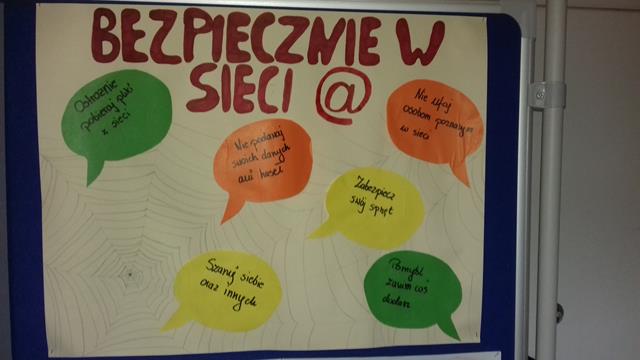 BEZPIECZNIE W
SIECI @
Ostrożnie
pobieraj pliki
z sieci
Nie podawaj
swoich danych
ani haseł
Nie ufaj
osobom poznanym
w sieci
Zabezpiecz
swój sprzęt
Szanuj siebie
oraz innych
Pomyśl
zanim coś
dodasz